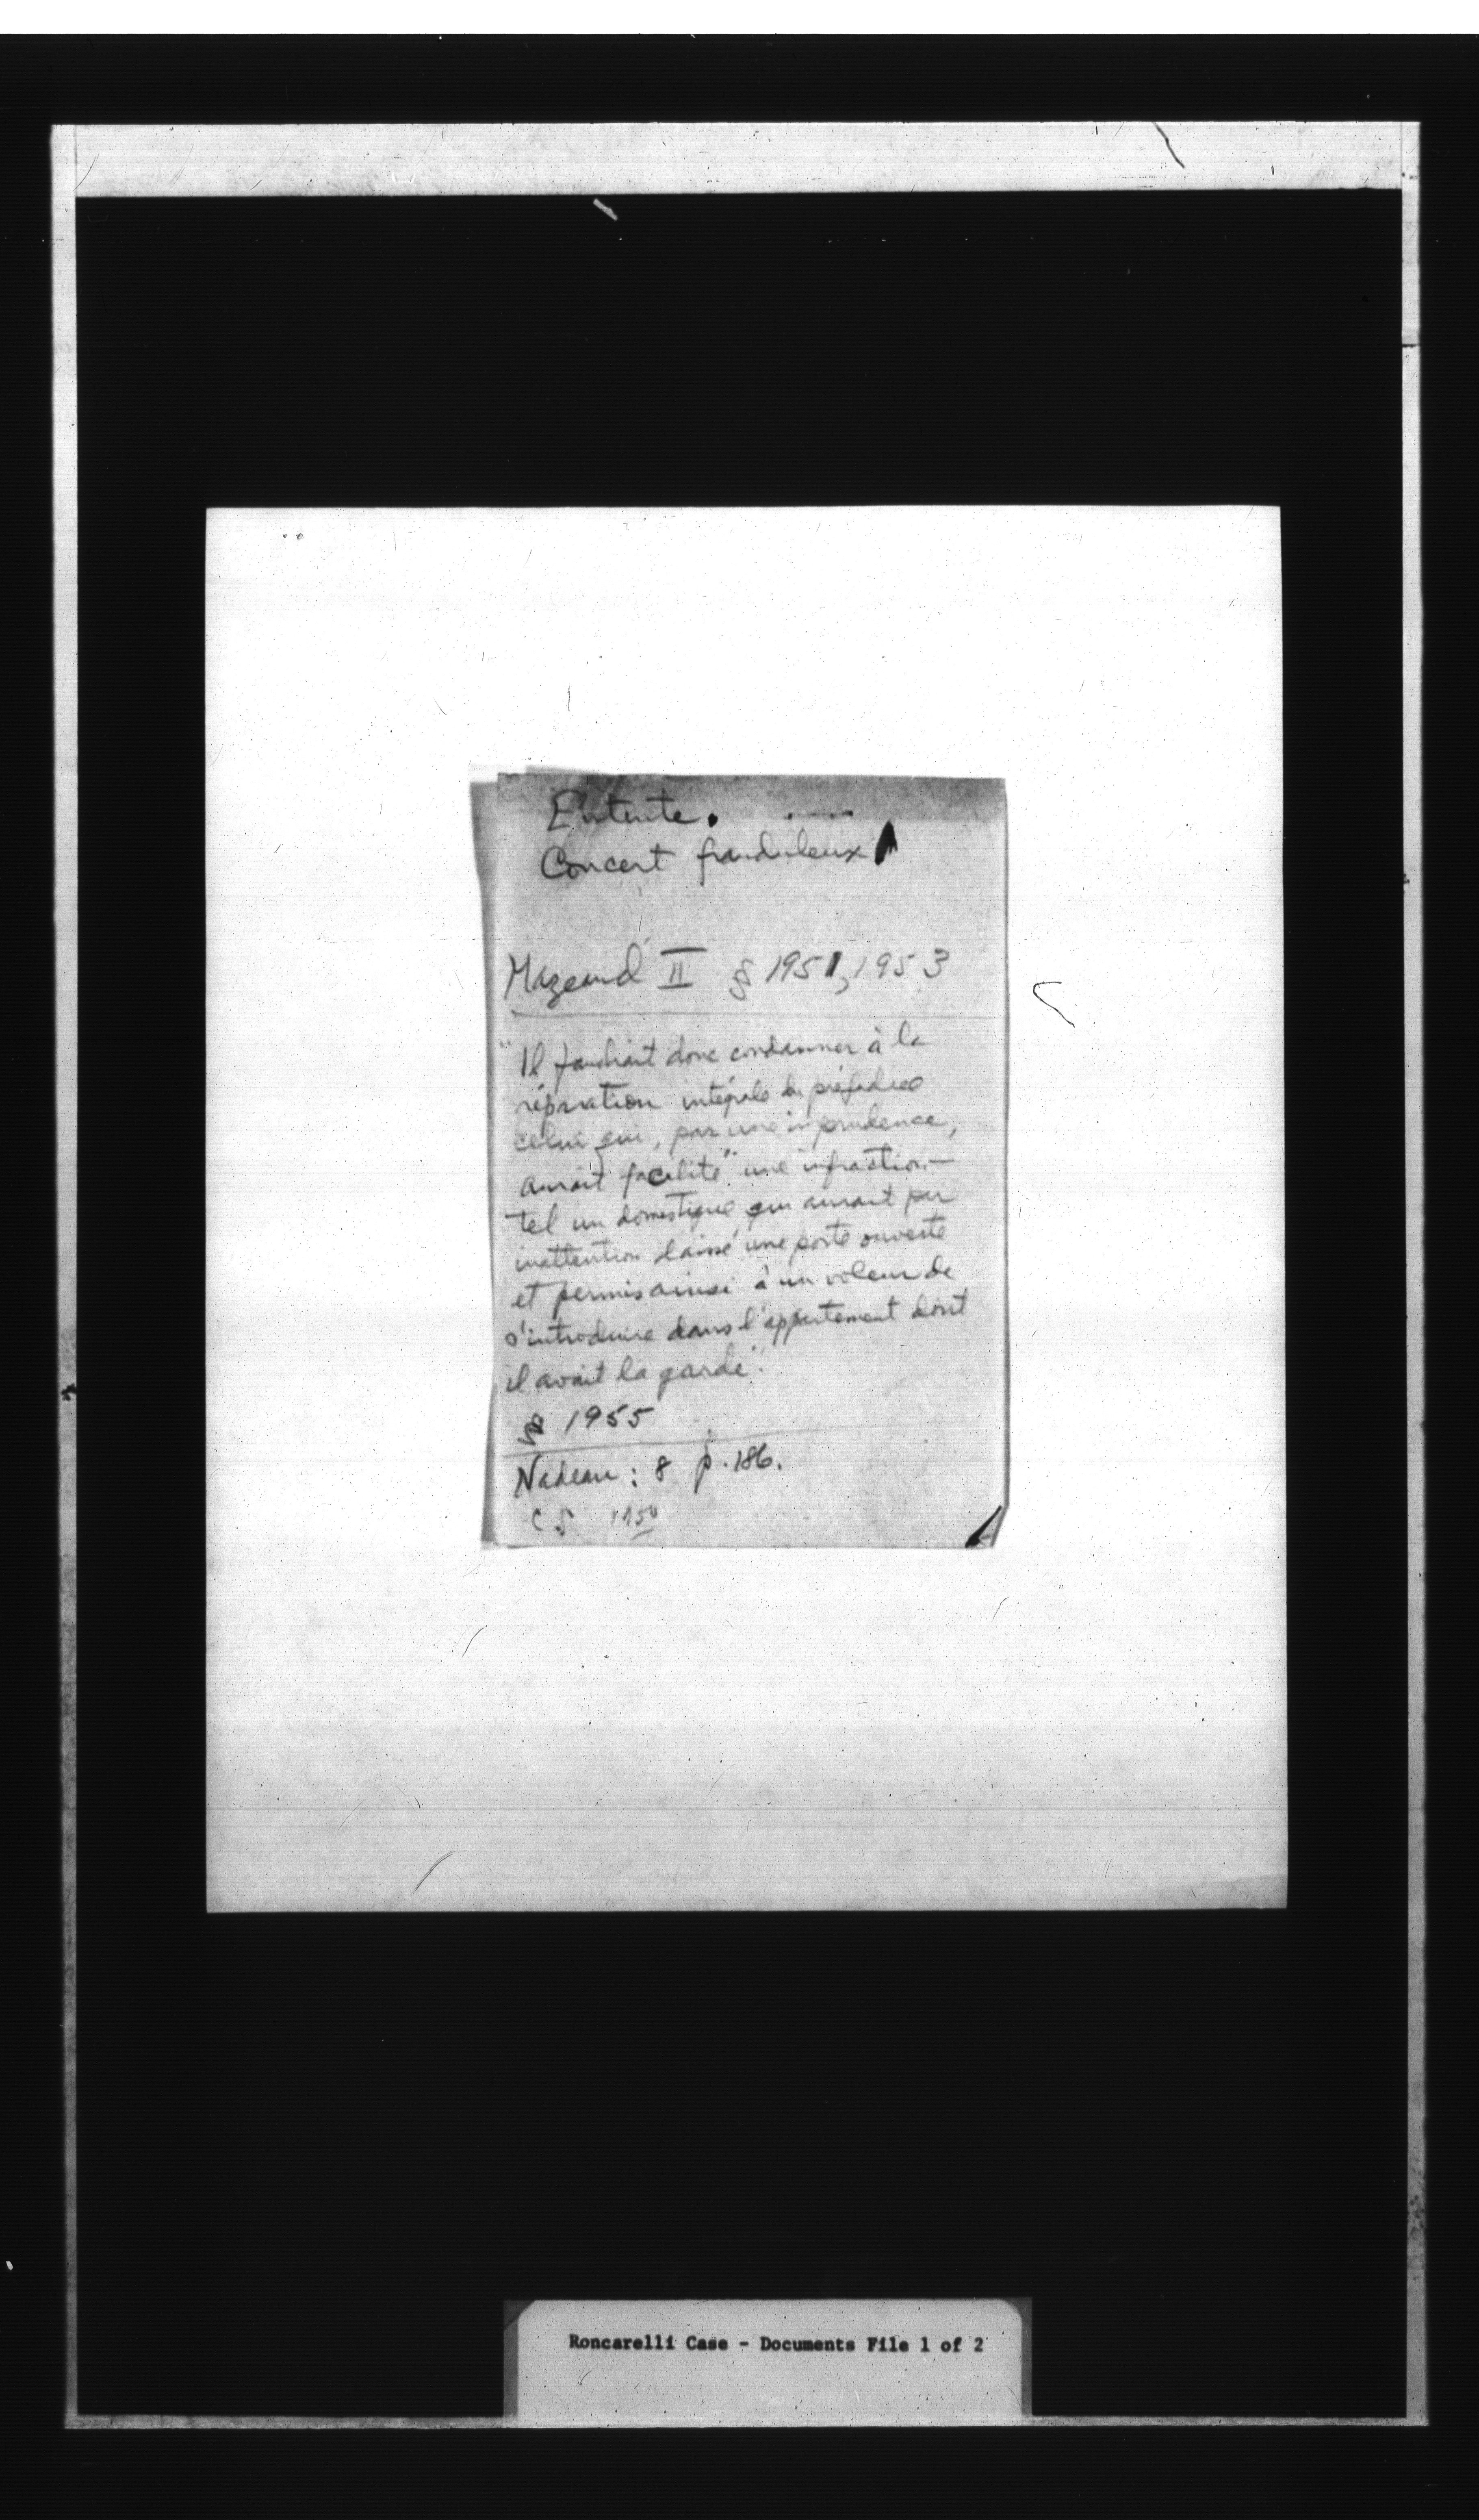 Entente.
Concert frauduleux
Mazeaud II § 1951, 1953
"Il faudrait donc condamner à la
réparation intégrale du préjudice
celui qui, par une imprudence,
aurait "facilité" une infraction—
tel un domestique qui aurait par
inattention laissé une porte ouverte
et permis ainsi à un voleur de
s'introduire dans l'appartement dont
il avait la garde".
§ 1955
Nadeau: 8 p. 186.
CS
Roncarelli Case - Documents File 1 of 2